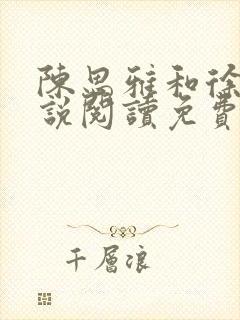 陳思雅和徐
說閱讀免費
千層浪